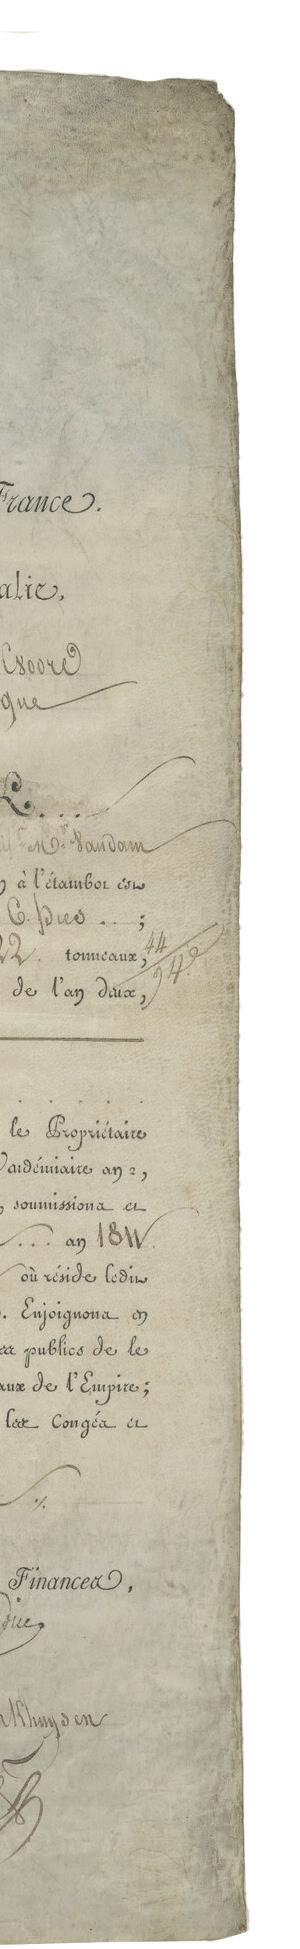 France.
alie,
que
L...
Mr. Vandam
à l'étambot est
6. pieds ... ;
22. tonneaux, 44/94es
de l'an deux,
le Propriétaire
Vendémiaire an 2,
, soumissions et
... an 18
où réside ledit
. Enjoignons en
publics de le
aux de l'Empire ;
les Congés et
Finances,